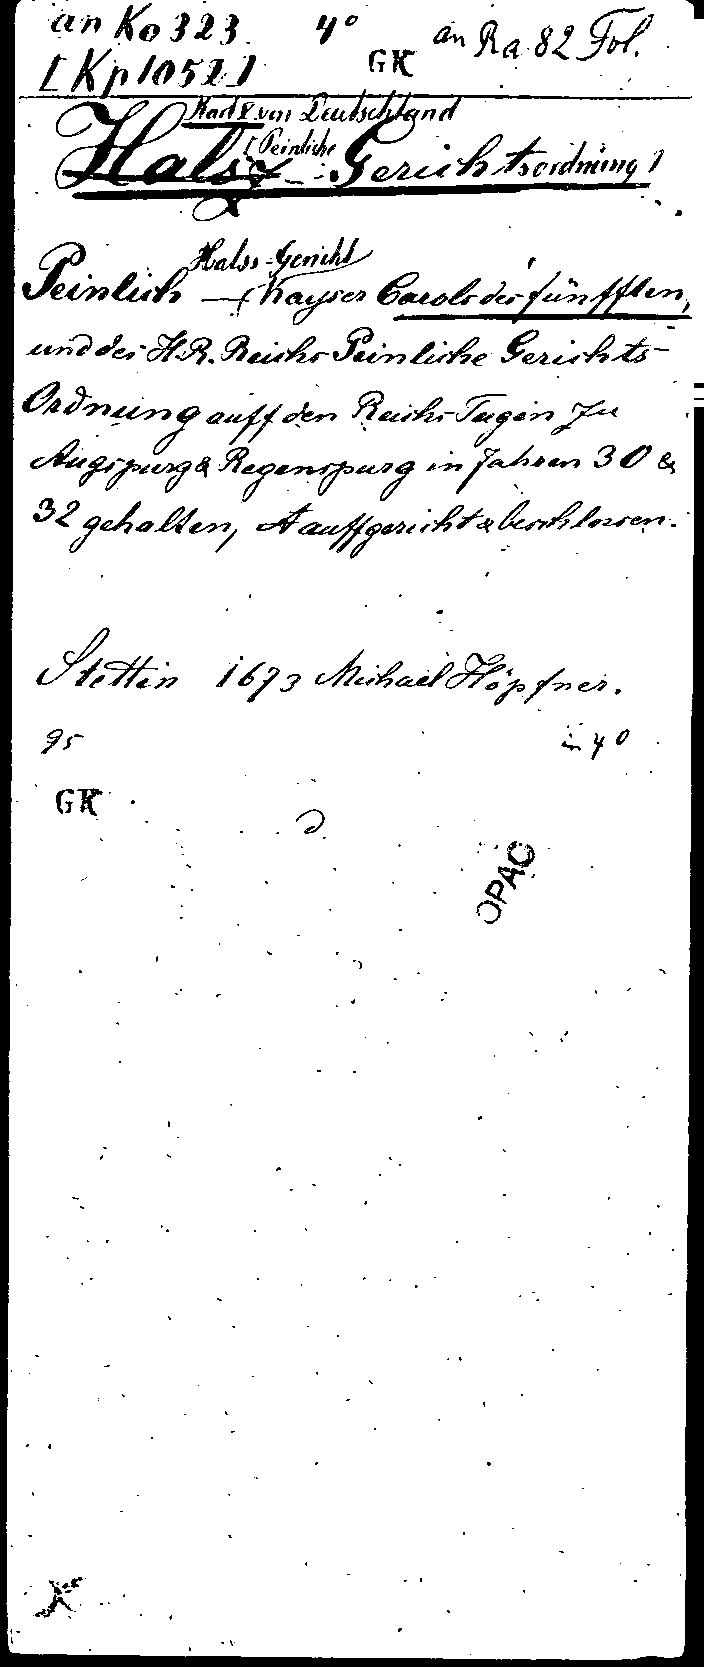 an Ko 323 4° an Ra 82 Fol.
[Kp 1052] GK
Karl V. von Deutschland
Hals - Gerichtsordnung]
[Peinliche
Halss-Gericht
Peinlich — Kayser Carols des fünfften,
und des H. R. Reichs Peinliche Gerichts-
Ordnung auff den Reichs Tagen zu
Augspurg & Regenspurg in Jahren 30 &
32 gehalten, auffgericht & beschlossen.
Stettin 1673 Michael Höpfner.
95 in 4°
GK
OPAC